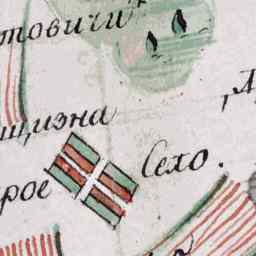 товичи
щизна
,А
рое Село.